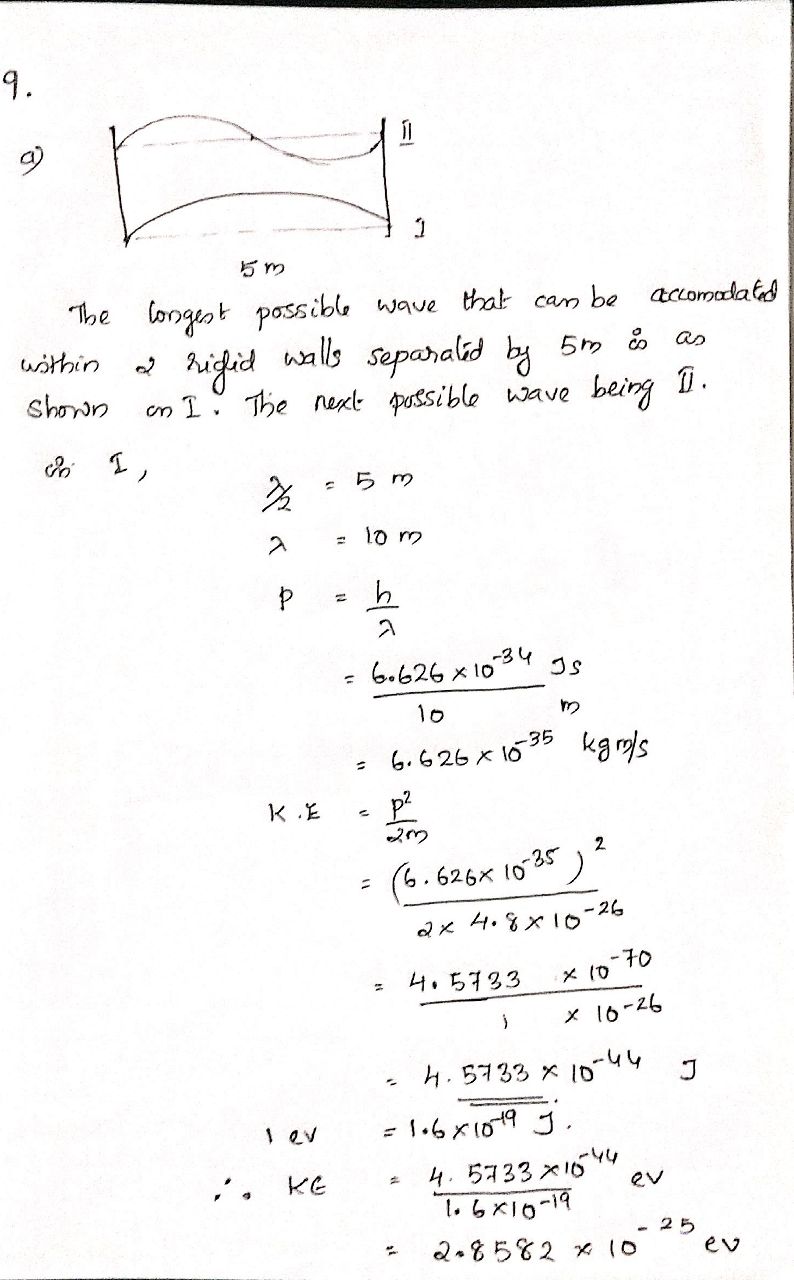 9.
a)
II
I
5 m
The longest possible wave that can be accomodated
within 2 rigid walls separated by 5m is as
shown in I. The next possible wave being II.
in I,
λ/2 = 5 m
λ = 10 m
P = h/λ
= 6.626 × 10^-34 Js / 10 m
= 6.626 × 10^-35 kg m/s
K.E = p²/2m
= (6.626 × 10^-35)² / 2 × 4.8 × 10^-26
= 4.5733 × 10^-70 / 1 × 10^-26
= 4.5733 × 10^-44 J
1 ev = 1.6 × 10^-19 J.
∴ KE = 4.5733 × 10^-44 / 1.6 × 10^-19 ev
= 2.8582 × 10^-25 ev